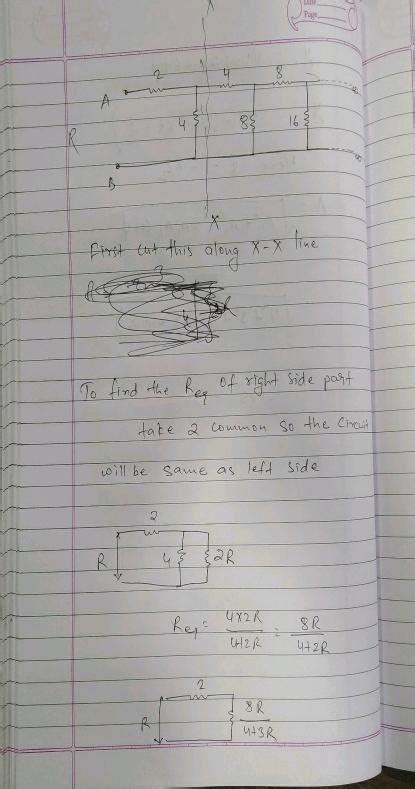 Date
Page
X
2 4 8
A
4 8 16
R
B
X
First cut this along X-X line
To find the Req of right side part
take 2 common so the circuit
will be same as left side
2
R 4 2R
Req = 4×2R / 4+2R = 8R / 4+2R
2
R 8R / 4+3R